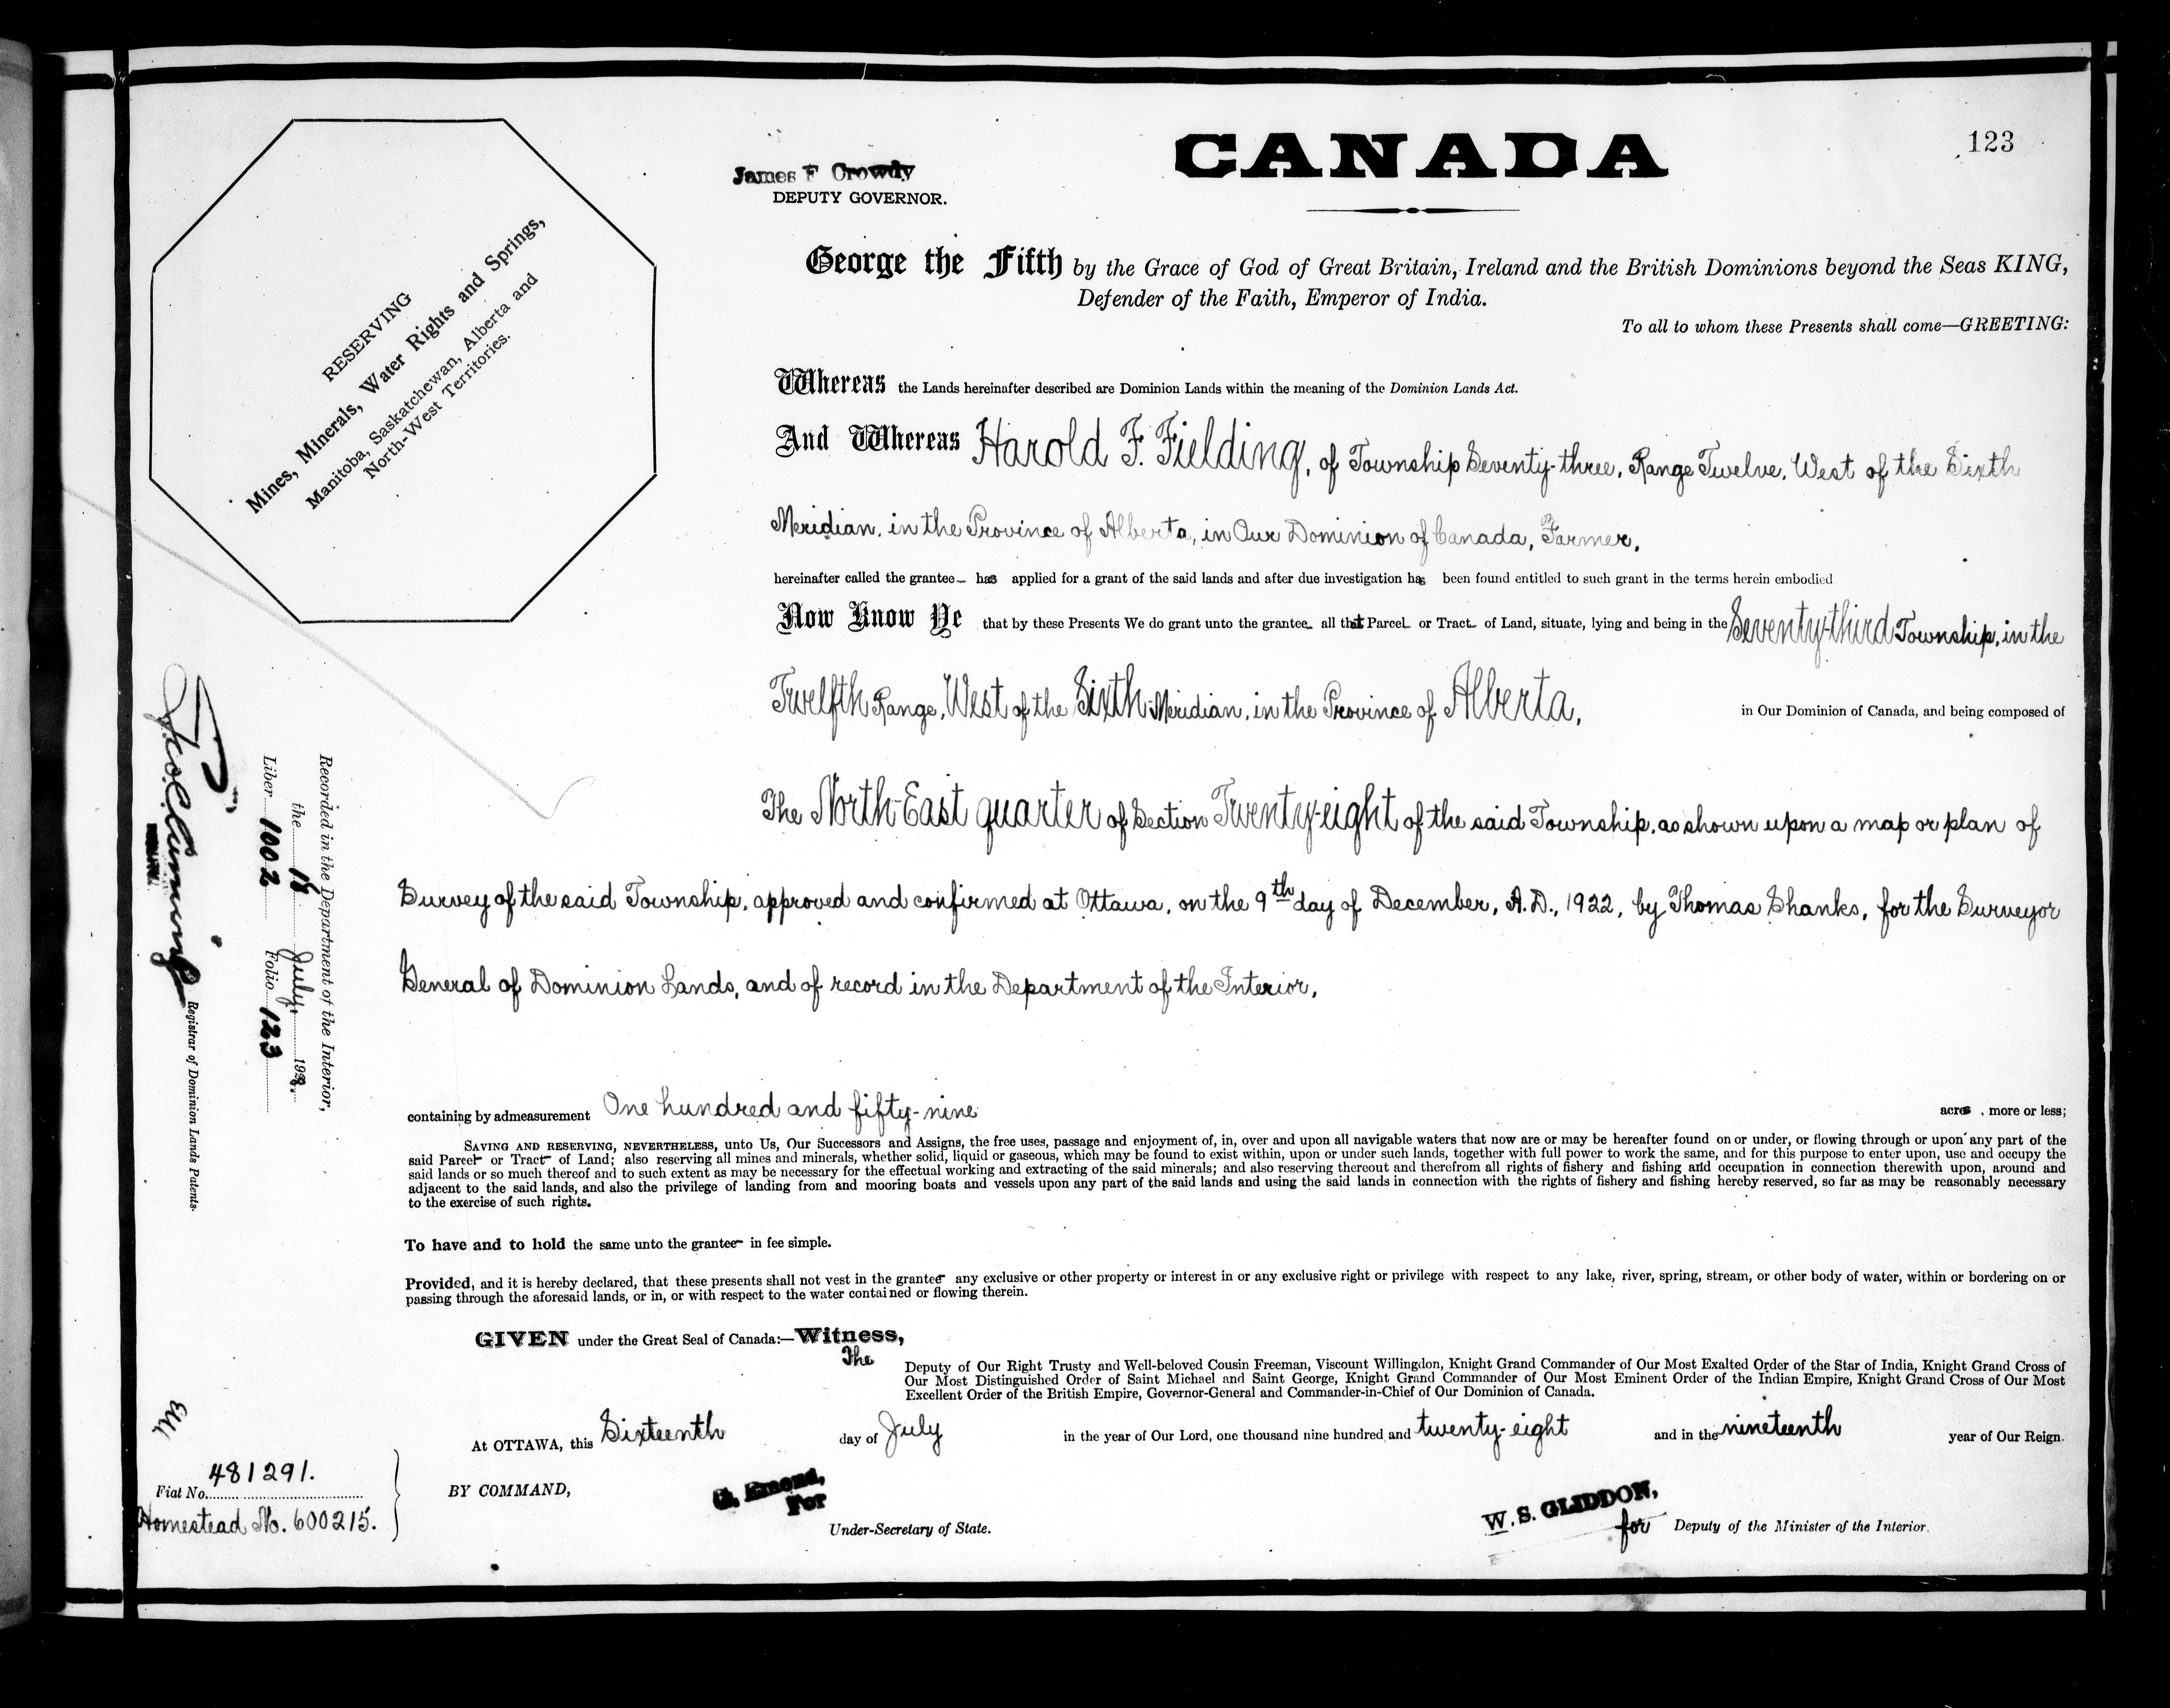 CANADA
123
James F Crowdy
DEPUTY GOVERNOR.
RESERVING
Mines, Minerals, Water Rights and Springs,
Manitoba, Saskatchewan, Alberta and
North-West Territories.
George the Fifth by the Grace of God of Great Britain, Ireland and the British Dominions beyond the Seas KING,
Defender of the Faith, Emperor of India.
To all to whom these Presents shall come—GREETING:
Whereas the Lands hereinafter described are Dominion Lands within the meaning of the Dominion Lands Act.
And Whereas Harold F. Fielding, of Township Seventy-three, Range Twelve, West of the Sixth
Meridian, in the Province of Alberta, in Our Dominion of Canada, Farmer,
hereinafter called the grantee has applied for a grant of the said lands and after due investigation has been found entitled to such grant in the terms herein embodied
Now Know Ye that by these Presents We do grant unto the grantee all that Parcel or Tract of Land, situate, lying and being in the Seventy-third Township, in the
Twelfth Range, West of the Sixth Meridian, in the Province of Alberta, in Our Dominion of Canada, and being composed of
The North-East quarter of Section Twenty-eight of the said Township, as shown upon a map or plan of
Survey of the said Township, approved and confirmed at Ottawa, on the 9th day of December, A.D., 1922, by Thomas Shanks, for the Surveyor
General of Dominion Lands, and of record in the Department of the Interior,
containing by admeasurement One hundred and fifty-nine acres, more or less;
SAVING AND RESERVING, NEVERTHELESS, unto Us, Our Successors and Assigns, the free uses, passage and enjoyment of, in, over and upon all navigable waters that now are or may be hereafter found on or under, or flowing through or upon any part of the
said Parcel or Tract of Land; also reserving all mines and minerals, whether solid, liquid or gaseous, which may be found to exist within, upon or under such lands, together with full power to work the same, and for this purpose to enter upon, use and occupy the
said lands or so much thereof and to such extent as may be necessary for the effectual working and extracting of the said minerals; and also reserving thereout and therefrom all rights of fishery and fishing and occupation in connection therewith upon, around and
adjacent to the said lands, and also the privilege of landing from and mooring boats and vessels upon any part of the said lands and using the said lands in connection with the rights of fishery and fishing hereby reserved, so far as may be reasonably necessary
to the exercise of such rights.
To have and to hold the same unto the grantee in fee simple.
Provided, and it is hereby declared, that these presents shall not vest in the grantee any exclusive or other property or interest in or any exclusive right or privilege with respect to any lake, river, spring, stream, or other body of water, within or bordering on or
passing through the aforesaid lands, or in, or with respect to the water contained or flowing therein.
GIVEN under the Great Seal of Canada:—Witness,
The
Deputy of Our Right Trusty and Well-beloved Cousin Freeman, Viscount Willingdon, Knight Grand Commander of Our Most Exalted Order of the Star of India, Knight Grand Cross of
Our Most Distinguished Order of Saint Michael and Saint George, Knight Grand Commander of Our Most Eminent Order of the Indian Empire, Knight Grand Cross of Our Most
Excellent Order of the British Empire, Governor-General and Commander-in-Chief of Our Dominion of Canada.
At OTTAWA, this Sixteenth day of July in the year of Our Lord, one thousand nine hundred and twenty-eight and in the nineteenth year of Our Reign.
BY COMMAND,
G. Emond,
For
Under-Secretary of State.
W. S. GLIDDON,
for Deputy of the Minister of the Interior.
Recorded in the Department of the Interior,
the 18 July, 1928.
Liber 1002 Folio 123
Registrar of Dominion Lands Patents.
Fiat No. 481291.
Homestead No. 600215.